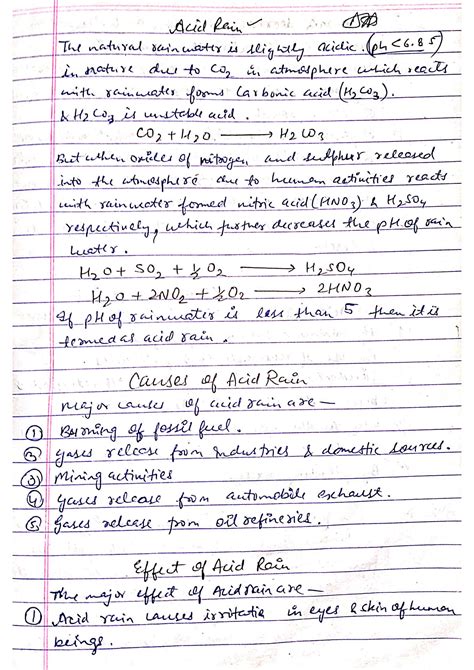 Acid Rain
The natural rainwater is slightly acidic. (pH < 6.85)
in nature due to CO2 in atmosphere which reacts
with rainwater forms Carbonic acid (H2CO3).
& H2CO3 is unstable acid.
CO2 + H2O → H2CO3
But when oxides of nitrogen and sulphur released
into the atmosphere due to human activities reacts
with rainwater formed nitric acid (HNO3) & H2SO4
respectively, which further decreases the pH of rain
water.
H2O + SO2 + ½ O2 → H2SO4
H2O + 2NO2 + ½ O2 → 2HNO3
If pH of rainwater is less than 5 then it is
termed as acid rain.
Causes of Acid Rain
Major causes of acid rain are —
① Burning of fossil fuel.
② Gases release from industries & domestic sources.
③ Mining activities
④ Gases release from automobile exhaust.
⑤ Gases release from oil refineries.
Effect of Acid Rain
The major effect of Acid rain are —
① Acid rain causes irritatia in eyes & skin of human
beings.